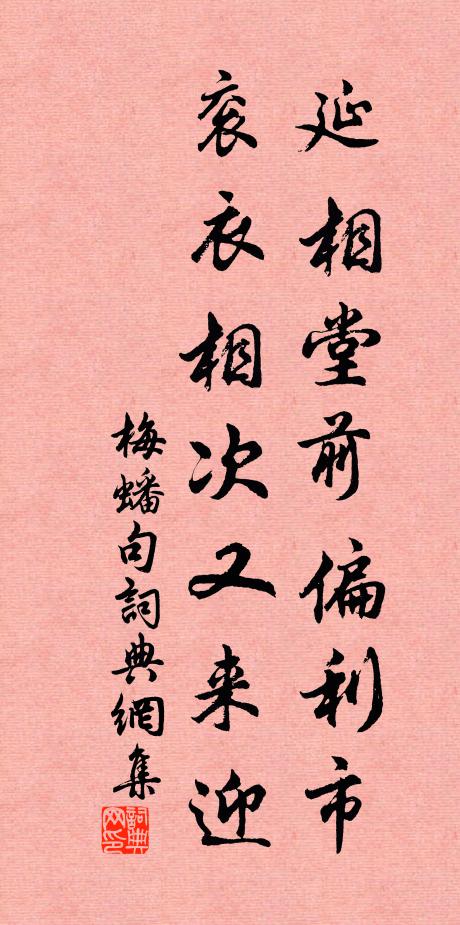 延相堂前偏利市
衮衣相次又来迎
梅蟠句詞典網集
詞典网印